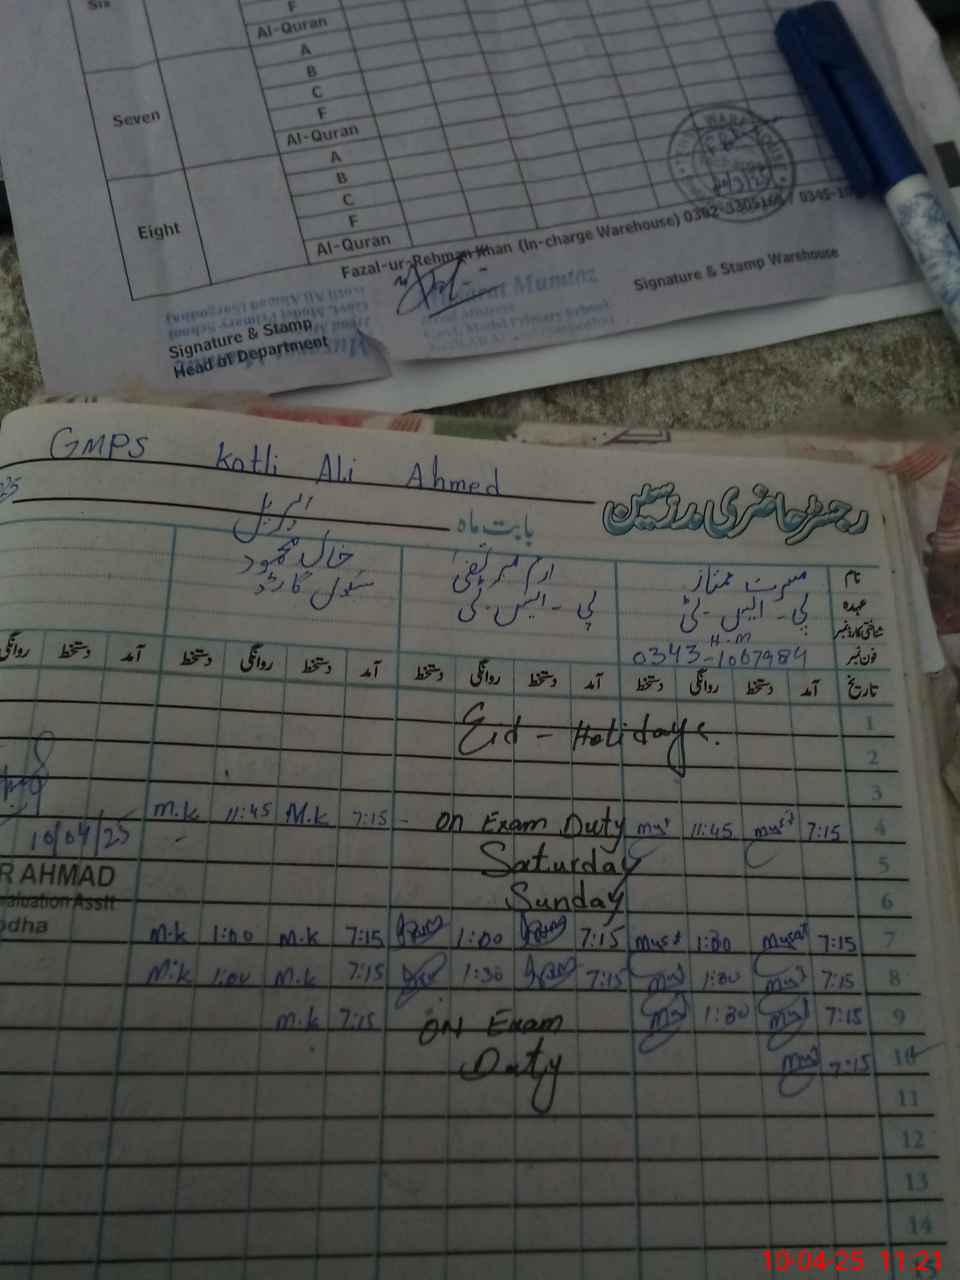 Six
F
Al-Quran
Seven
A
B
C
F
Al-Quran
Eight
A
B
C
F
Al-Quran
Fazal-ur-Rehman Khan (In-charge Warehouse) 0302-3305166 / 0345-
Signature & Stamp Warehouse
Signature & Stamp
Head of Department
Musarat Mumtaz
Govt. Model Primary School
GMPS Kotli Ali Ahmed
رجسٹر حاضری مدرسین
بابت ماہ اپریل
نام مسرت ممتاز خالد محمود
عہدہ پی - ایس - ٹی پی - ایس - ٹی سکول گارڈ
H.M
شناختی کارڈ نمبر
فون نمبر 0343-1067984
تاریخ آمد دستخط روانگی دستخط آمد دستخط روانگی دستخط آمد دستخط روانگی دستخط آمد دستخط روانگی
1 Eid - Holidays.
2
3
4 7:15 11:45 On Exam Duty 7:15 M.k 11:45 m.k
10/04/25
5 Saturday
R AHMAD
6 Sunday
aluation Asstt
odha
7 7:15 Musat 1:30 Must 7:15 1:00 7:15 M.k 1:00 M.k
8 7:15 1:30 7:15 1:30 7:15 M.k 1:00 M.k
9 7:15 1:30 ON Exam 7:15 m.k
10 7:15 Duty
11
12
13
14
10-04-25 11:21